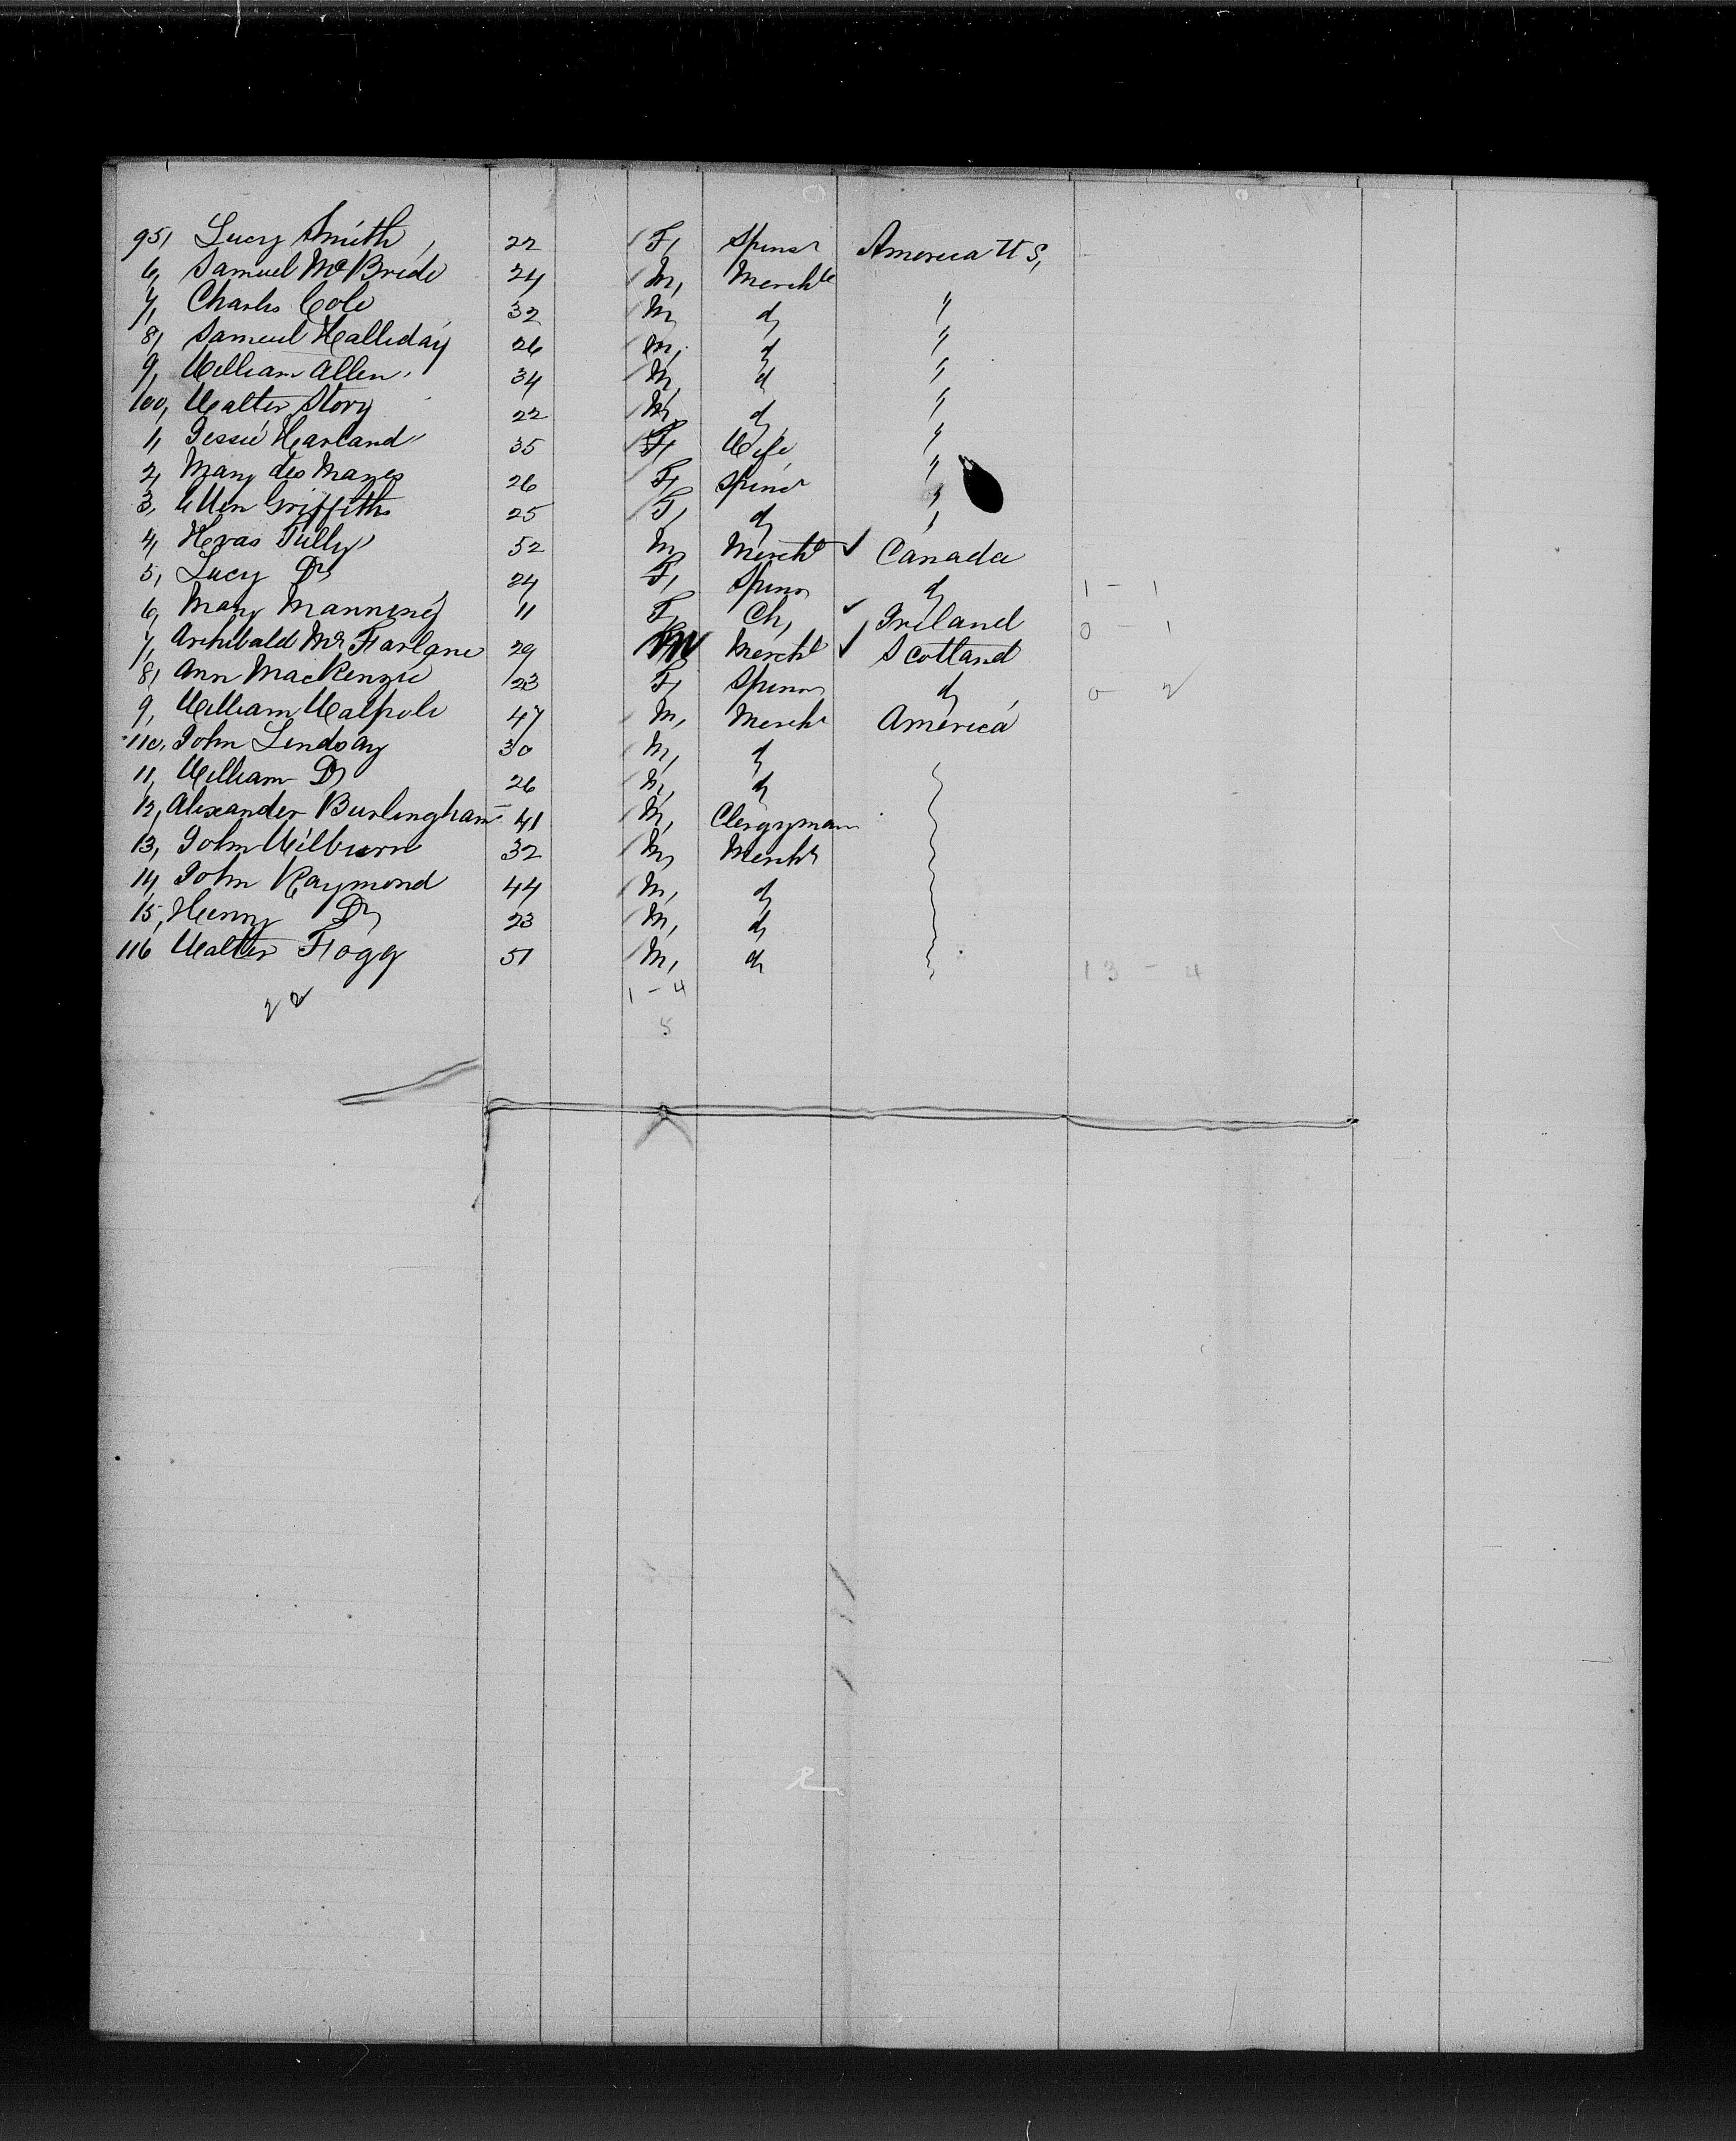 95, Lucy Smith, 22 F, Spinsr America U S,
6, Samuel McBride 24 M, Merchts
7, Charles Cole 32 M, do "
8, Samuel Halliday 26 M, do "
9, William Allen, 34 M, do "
100, Walter Story 22 M, do "
1, Jessie Harland 35 F, Wife "
2, Mary des Mares 26 F, Spinsr "
3, Ellen Griffiths 25 F, do "
4, Tully 52 M, Merchts ✓ Canada
5, Lucy Do 24 F, Spinsr do 1 - 1
6, Mary Manning 11 F, Ch, ✓ Ireland 0 - 1
7, Archibald McFarlane 29 M Mercht ✓ Scotland
8, Ann MacKenzie 23 F, Spinsr do 0 - 2
9, William Walpole 47 M, Mercht America
110, John Lindsay 30 M, do
11, William Do 26 M, do
12, Alexander Burlingham 41 M, Clergyman
13, John Wilburn 32 M, Merchts
14, John Raymond 44 M, do
15, Henry Do 23 M, do
116 Walter Fogg 51 M, do 13 - 4
22 1 - 4
5